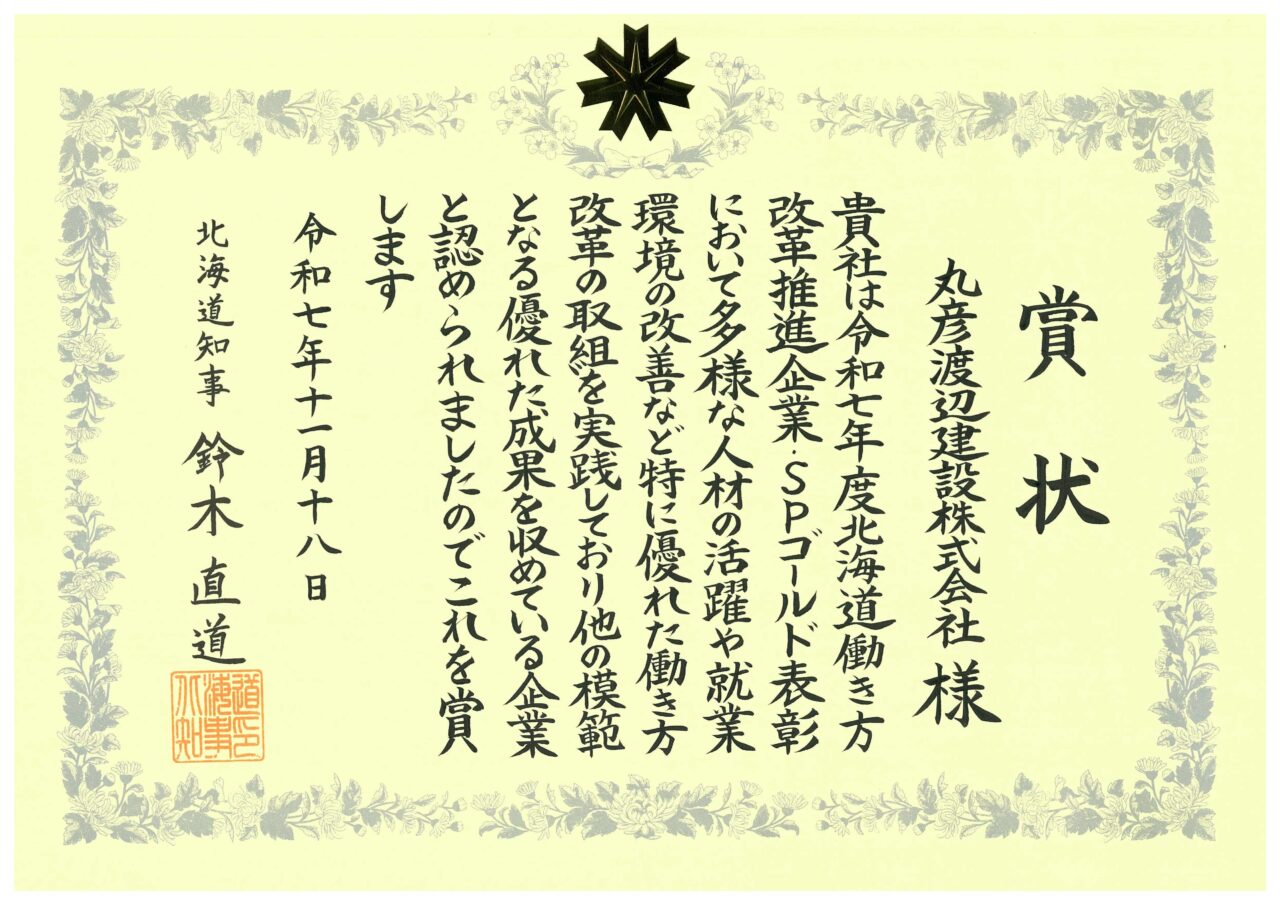 賞状
丸彦渡辺建設株式会社 様
貴社は令和七年度北海道働き方
改革推進企業・SPゴールド表彰
において多様な人材の活躍や就業
環境の改善など特に優れた働き方
改革の取組を実践しており他の模範
となる優れた成果を収めている企業
と認められましたのでこれを賞
します
令和七年十一月十八日
北海道知事 鈴木直道
北海道知事印